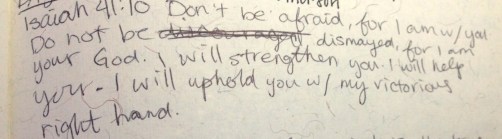 Isaiah 41:10 Don't be afraid, for I am w/ you
Do not be discouraged dismayed, for I am
your God. I will strengthen you. I will help
you. I will uphold you w/ my victorious
right hand.